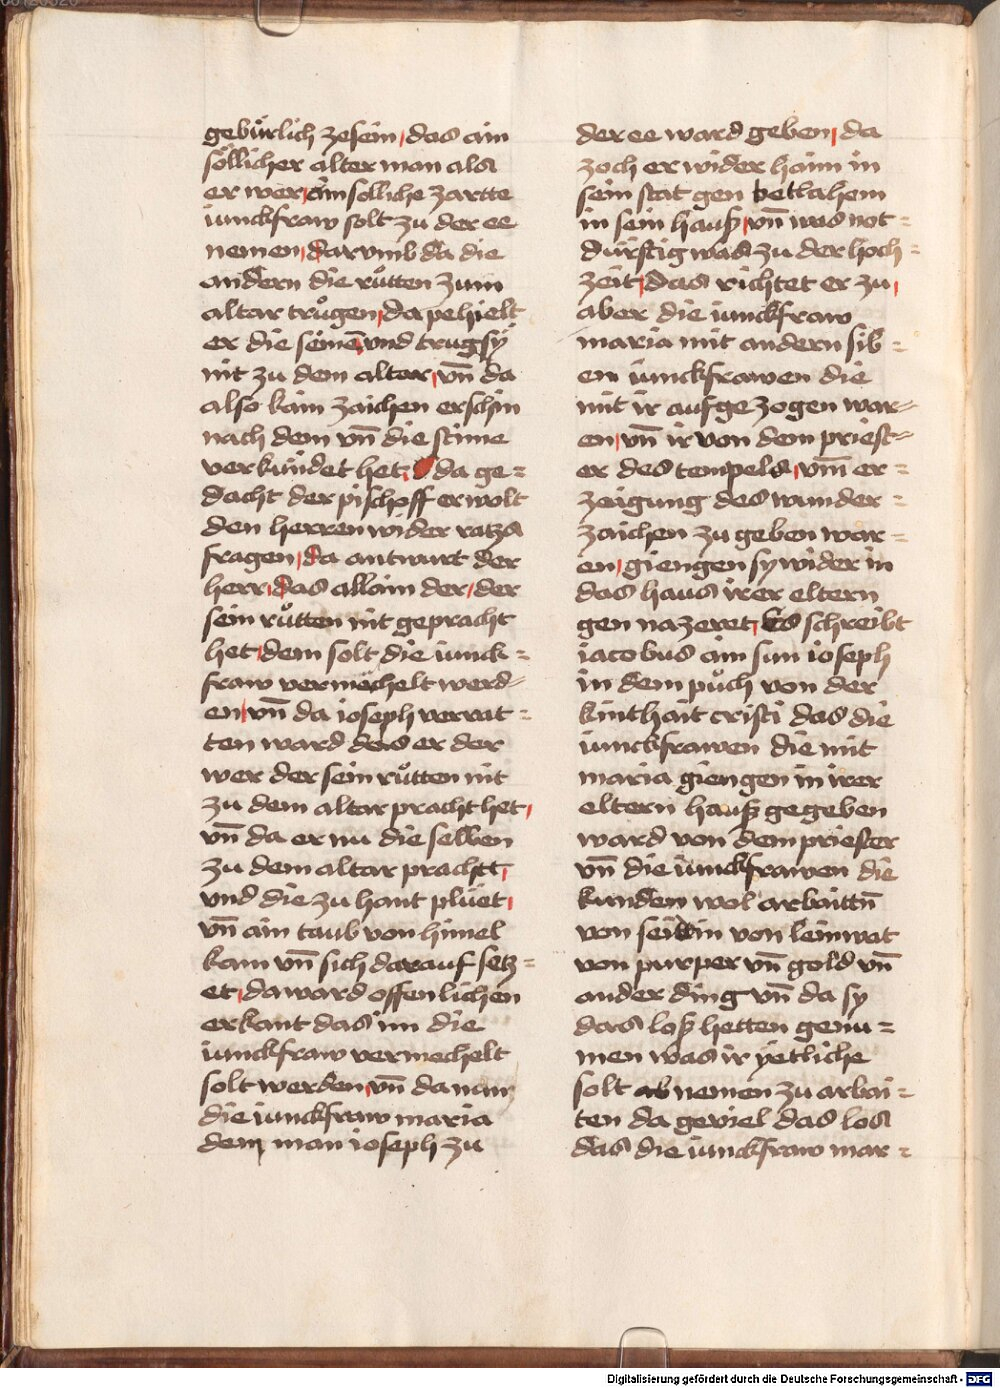 gebürlich zesein, das ain
söllicher alter man als
er wer, ain solliche zartte
iunckfraw solt zu der ee
nemen, darvmb da die
andern die rütten zum
altar trůgen, da pehielt
er die seinen, vnd trug sy
nit zu dem altar, vn̄ da
also kain zaichen erschin
nach dem vn̄ die stime
verkündet het, da ge=
dacht der pischoff er wolt
den herren wider ratzs
fragen, da antwurt der
herr, das allain der, der
sein rütten nit gepracht
het, dem solt die iunck=
fraw vermechelt werd=
en, vn̄ da ioseph verrat=
ten ward das er der
wer der sein rütten nit
zu dem altar pracht het,
vn̄ da er nu die selben
zu dem altar prachtt,
vnd die zu hant plüet,
vn̄ ain taub von himel
kam vn̄ sich darauf setz=
et, da ward offenlichen
erkant das im die
iunckfraw vermechelt
solt werden, vn̄ da nun
die iunckfraw maria
dem man ioseph zu
der ee ward geben, da
zoch er wider haim in
sein stat gen betlahem
in sein hauß, vn̄ was not=
dürftig was zu der hoch=
zeit, das richtet er zu,
aber die iunckfraw
maria mit andern sib=
en iunckfrawen die
mit ir aufgezogen war=
en, vn̄ ir von dem priest=
er des tempels, vm er=
zeigung des wunder=
zaichen zu geben war=
en, giengen sy wider in
das haus irer eltern
gen nazeret, Es schreibt
iacobus ain sun ioseph
in dem půch von der
kinthait cristi das die
iunckfrawen die mit
maria giengen in irer
eltern hauß gegeben
ward von dem priester
vn̄ die iunckfrawen die
kunden wol arbaittn̄
von seidin von leinwat
von purper vn̄ gold vn̄
ander ding vn̄ da sy
das loß hetten genu=
men was ir yetliche
solt ab nemen zu arbai=
ten da geviel das los
das die iunckfraw mar=
Digitalisierung gefördert durch die Deutsche Forschungsgemeinschaft - DFG